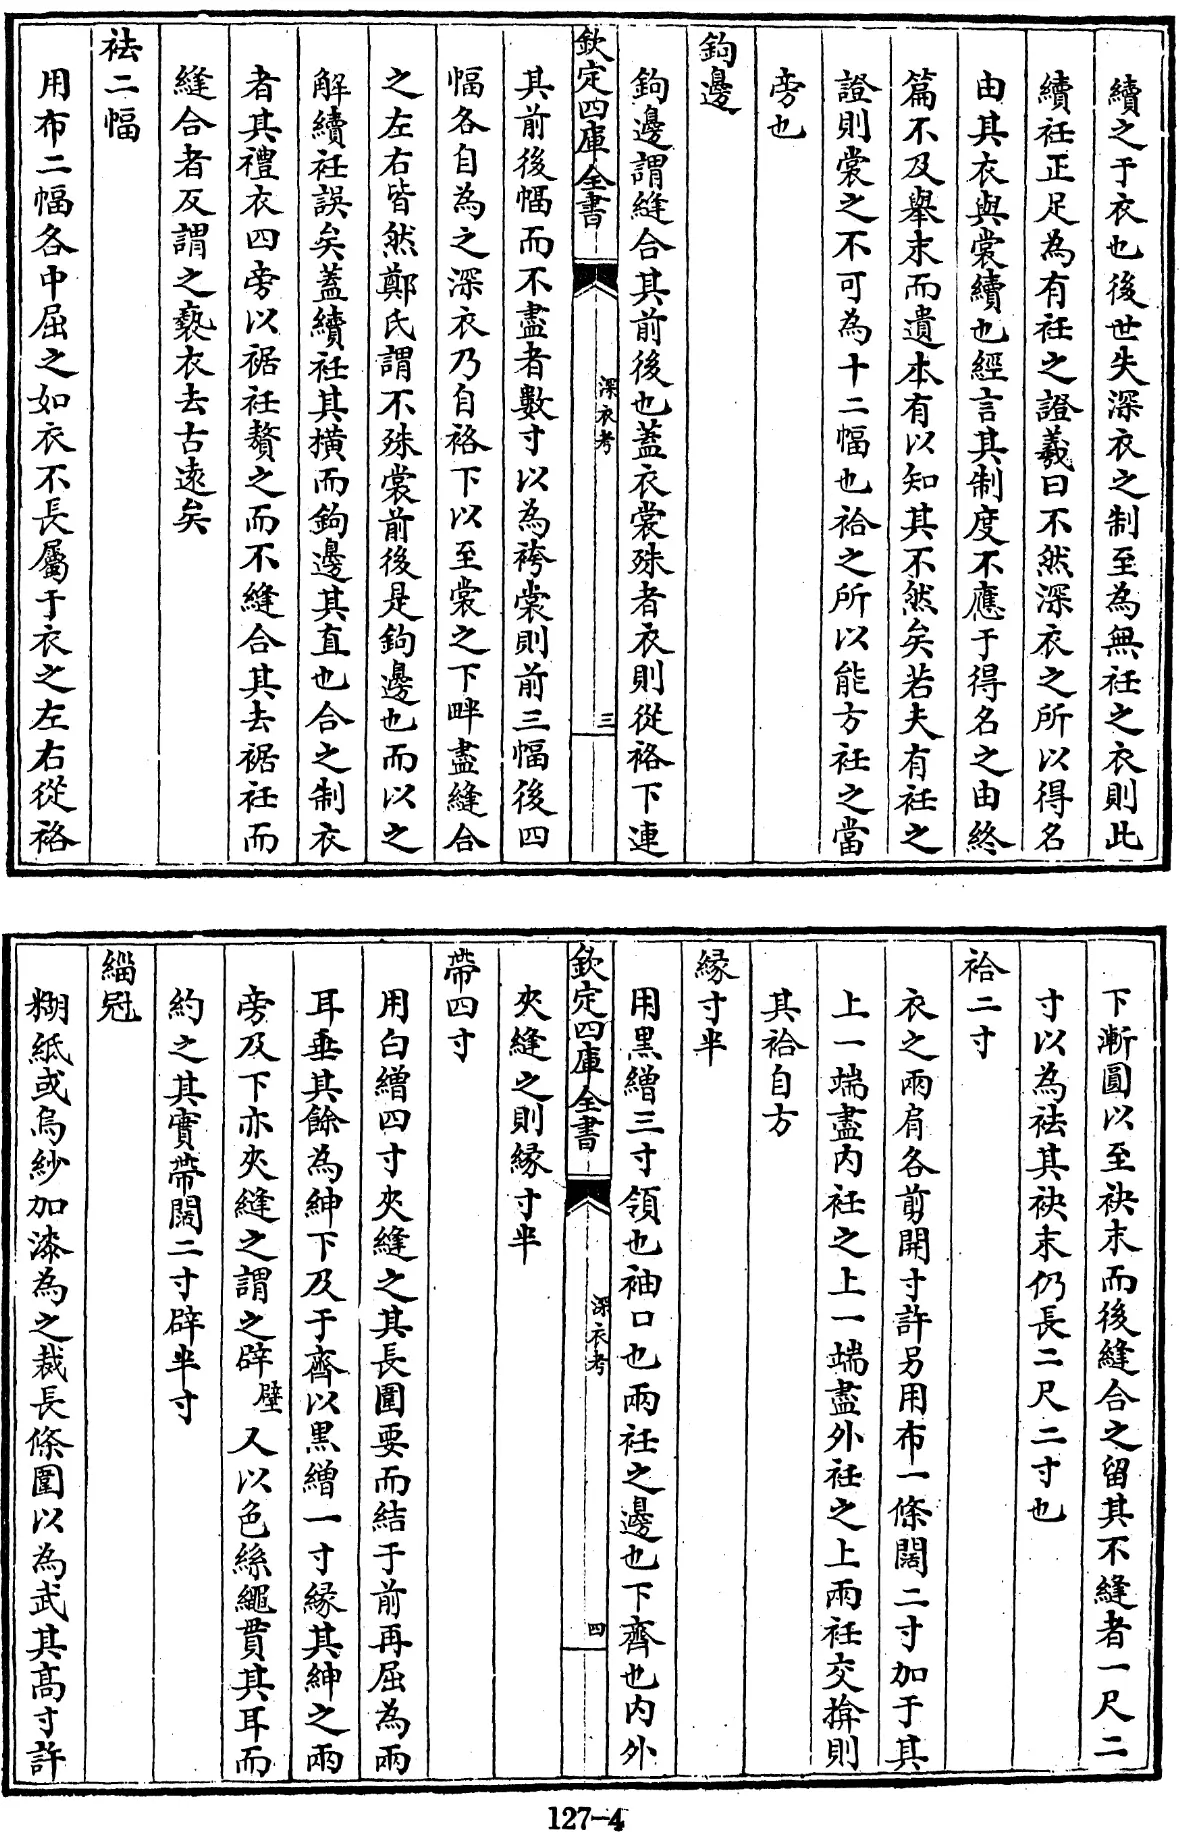 續之于衣也後世失深衣之制至為無衽之衣則此
續衽正足為有衽之證羲曰不然深衣之所以得名
由其衣與裳續也經言其制度不應于得名之由終
篇不及舉末而遺本有以知其不然矣若夫有衽之
證則裳之不可為十二幅也袷之所以能方衽之當
旁也
鉤邊
鉤邊謂縫合其前後也蓋衣裳殊者衣則從袼下連
欽定四庫全書
深衣考
三
其前後幅而不盡者數寸以為袴裳則前三幅後四
幅各自為之深衣乃自袼下以至裳之下畔盡縫合
之左右皆然鄭氏謂不殊裳前後是鉤邊也而以之
解續衽誤矣蓋續衽其橫而鉤邊其直也合之制衣
者其禮衣四旁以裾衽贅之而不縫合其去裾衽而
縫合者反謂之褻衣去古遠矣
袪二幅
用布二幅各中屈之如衣不長屬于衣之左右從袼
下漸圓以至袂末而後縫合之留其不縫者一尺二
寸以為袪其袂末仍長二尺二寸也
袷二寸
衣之兩肩各剪開寸許另用布一條闊二寸加于其
上一端盡內衽之上一端盡外衽之上兩衽交揜則
其袷自方
緣寸半
用黑繒三寸領也袖口也兩衽之邊也下齊也內外
欽定四庫全書
深衣考
四
夾縫之則緣寸半
帶四寸
用白繒四寸夾縫之其長圍要而結于前再屈為兩
耳垂其餘為紳下及于齊以黑繒一寸緣其紳之兩
旁及下亦夾縫之謂之辟 璧 又以色絲繩貫其耳而
約之其實帶闊二寸辟半寸
緇冠
糊紙或烏紗加漆為之裁長條圍以為武其高寸許
127-4